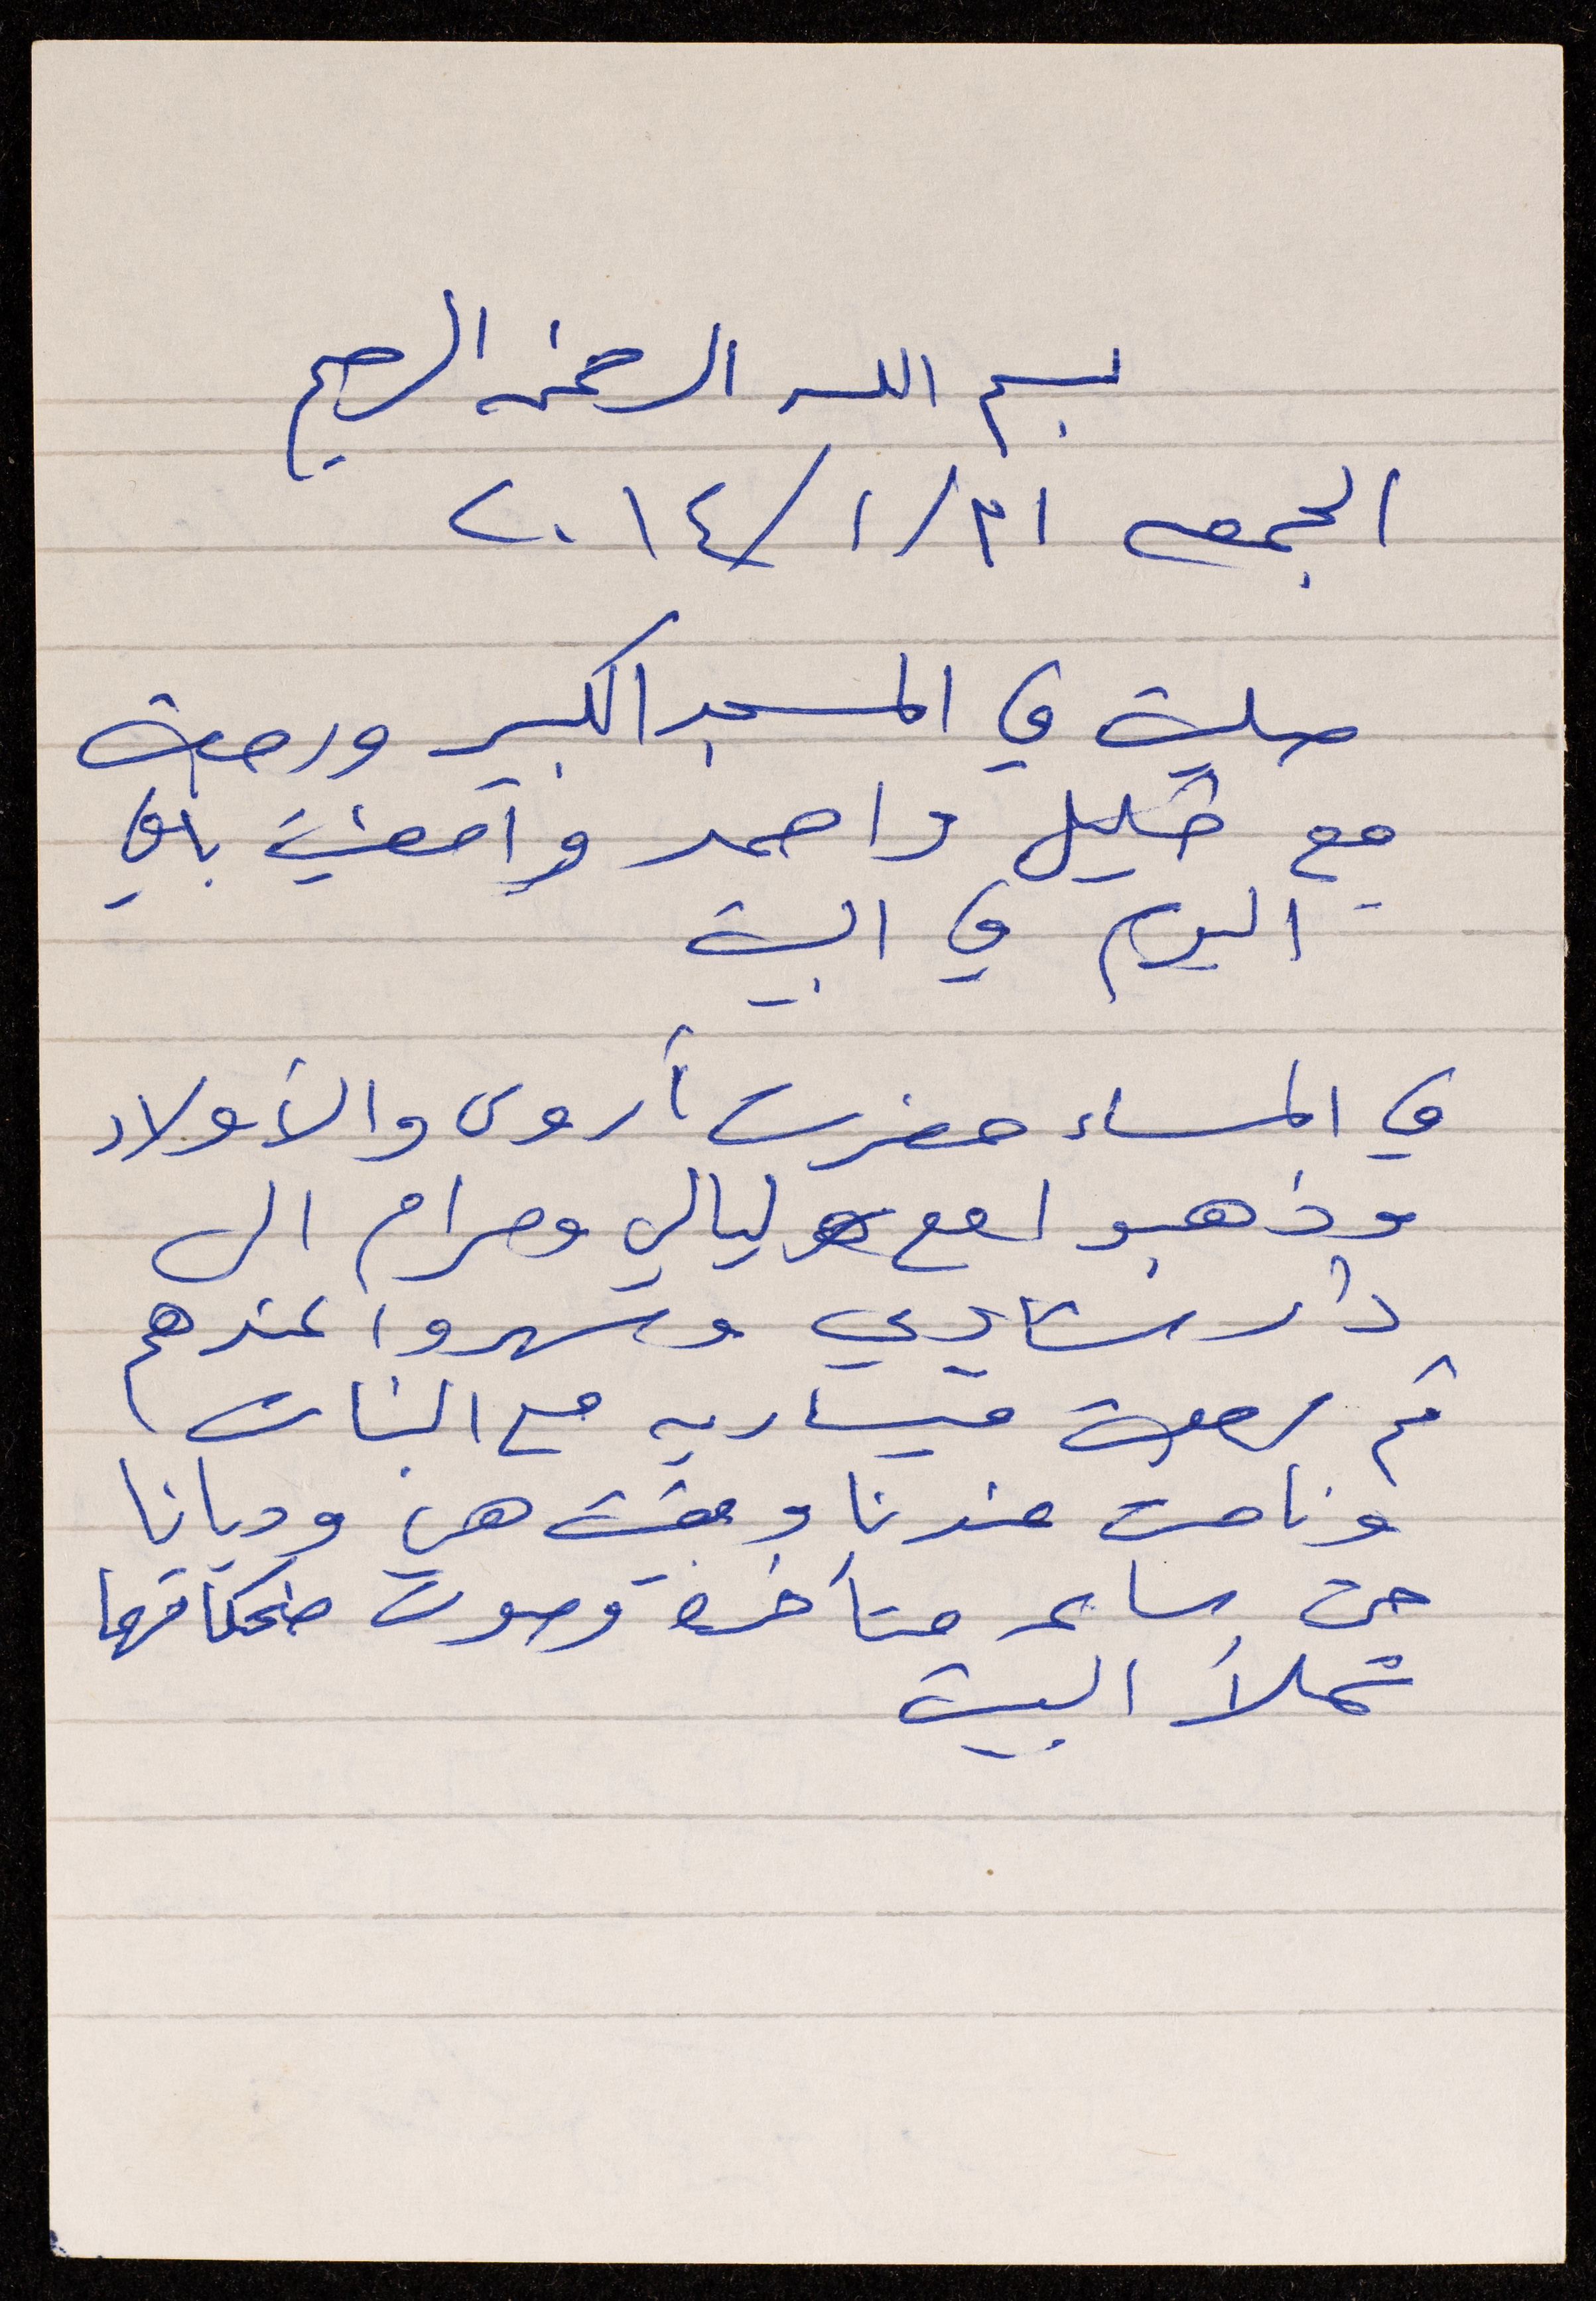 بسم الله الرحمن الرحيم
الجمعه ٣١/١/٢٠١٤
صليت في المسجد الكبير ورجعت
مع خليل واحمد وامضيت باقي
اليوم في البيت
في المساء حضرت أروى والأولاد
وذهبوا مع ليالي ومرام الى
دار شادي وسهروا عندهم
ثم رجعت ميساريه مع البنات
ونامت عندنا وبقيت هي وديانا
حتى ساعه متأخره وصوت ضحكاتهما
تملأ البيت